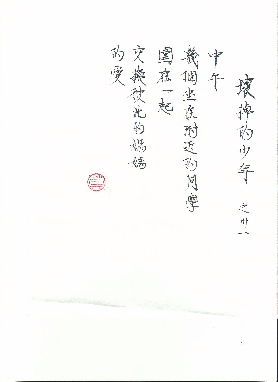 壞掉的少年 之廿八
中午
幾個坐在附近的同學
圍在一起
交換彼此的媽媽
的愛